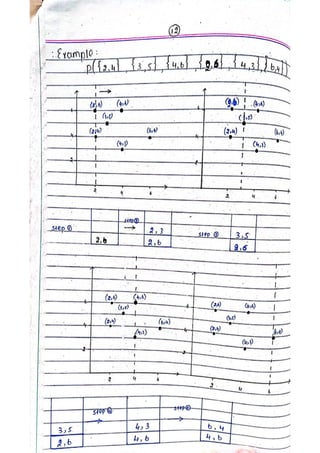 12
: Example :
P{{2,4}, {3,5}, {4,6}, {2,6}, {4,3}, {6,4}}
(2,6) (4,6)
(3,5)
(2,4) (6,4)
(4,3)
2 4 6
(2,6) (4,6)
(3,5)
(2,4) (6,4)
(4,3)
2 4 6
step ①
2,6
step ②
→
2,3
2,6
step ③
3,5
2,6
(2,6) (4,6)
(3,5)
(2,4) (6,4)
(4,3)
2 4 6
(2,6) (4,6)
(3,5)
(2,4) (6,4)
(4,3)
2 4 6
3,5
2,6
step ④
→
4,3
4,6
step ⑤
→
6,4
4,6